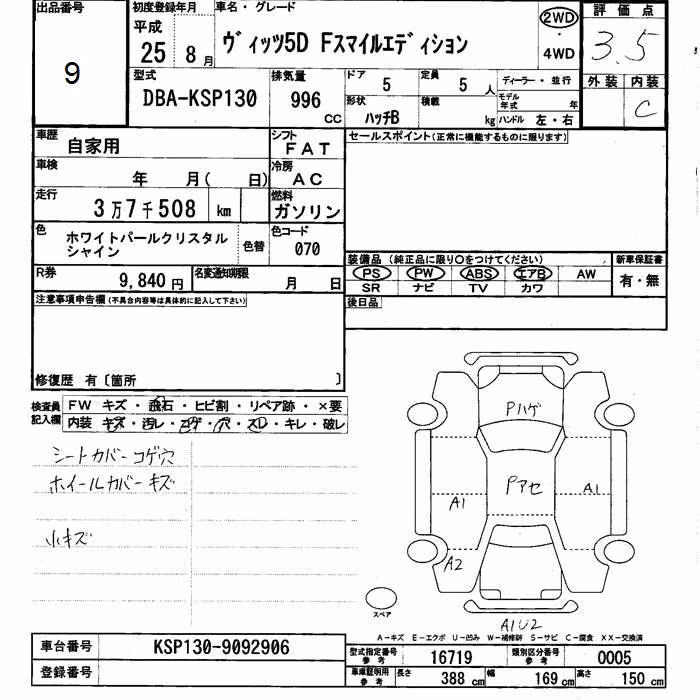 出品番号
9
初度登録年月
平成
25年8月
車名・グレード
ヴィッツ5D Fスマイルエディション
2WD
・
4WD
評価点
3.5
外装 内装
C
型式
DBA-KSP130
排気量
996
CC
ドア
5
定員
5人
ディーラー・並行
形状
ハッチB
積載
kg
モデル年式
年
ハンドル 左・右
車歴
自家用
シフト
FAT
セールスポイント(正常に機能するものに限ります)
車検
年 月( 日)
冷房
AC
走行
3万7千508 km
燃料
ガソリン
色
ホワイトパールクリスタル
シャイン
色替
色コード
070
装備品 (純正品に限り○をつけてください)
新車保証書
PS PW ABS エアB AW
SR ナビ TV カワ
有・無
R券
9,840円
名変通知期限
月 日
後日品
注意事項申告欄(不具合内容等は具体的に記入して下さい)
修復歴 有〔箇所 〕
検査員
記入欄
FW キズ・飛石・ヒビ割・リペア跡・×要
内装 キズ・汚レ・コゲ・穴・スレ・キレ・破レ
シートカバーコゲ穴
ホイールカバーキズ
小キズ
Pハゲ
Pアセ
A1
A1
A2
スペア
A1U2
A-キズ E-エクボ U-凹み W-補修跡 S-サビ C-腐食 XX-交換済
車台番号
KSP130-9092906
登録番号
型式指定番号
参考
16719
類別区分番号
参考
0005
車庫証明用
参考
長さ
388 cm
幅
169 cm
高さ
150 cm